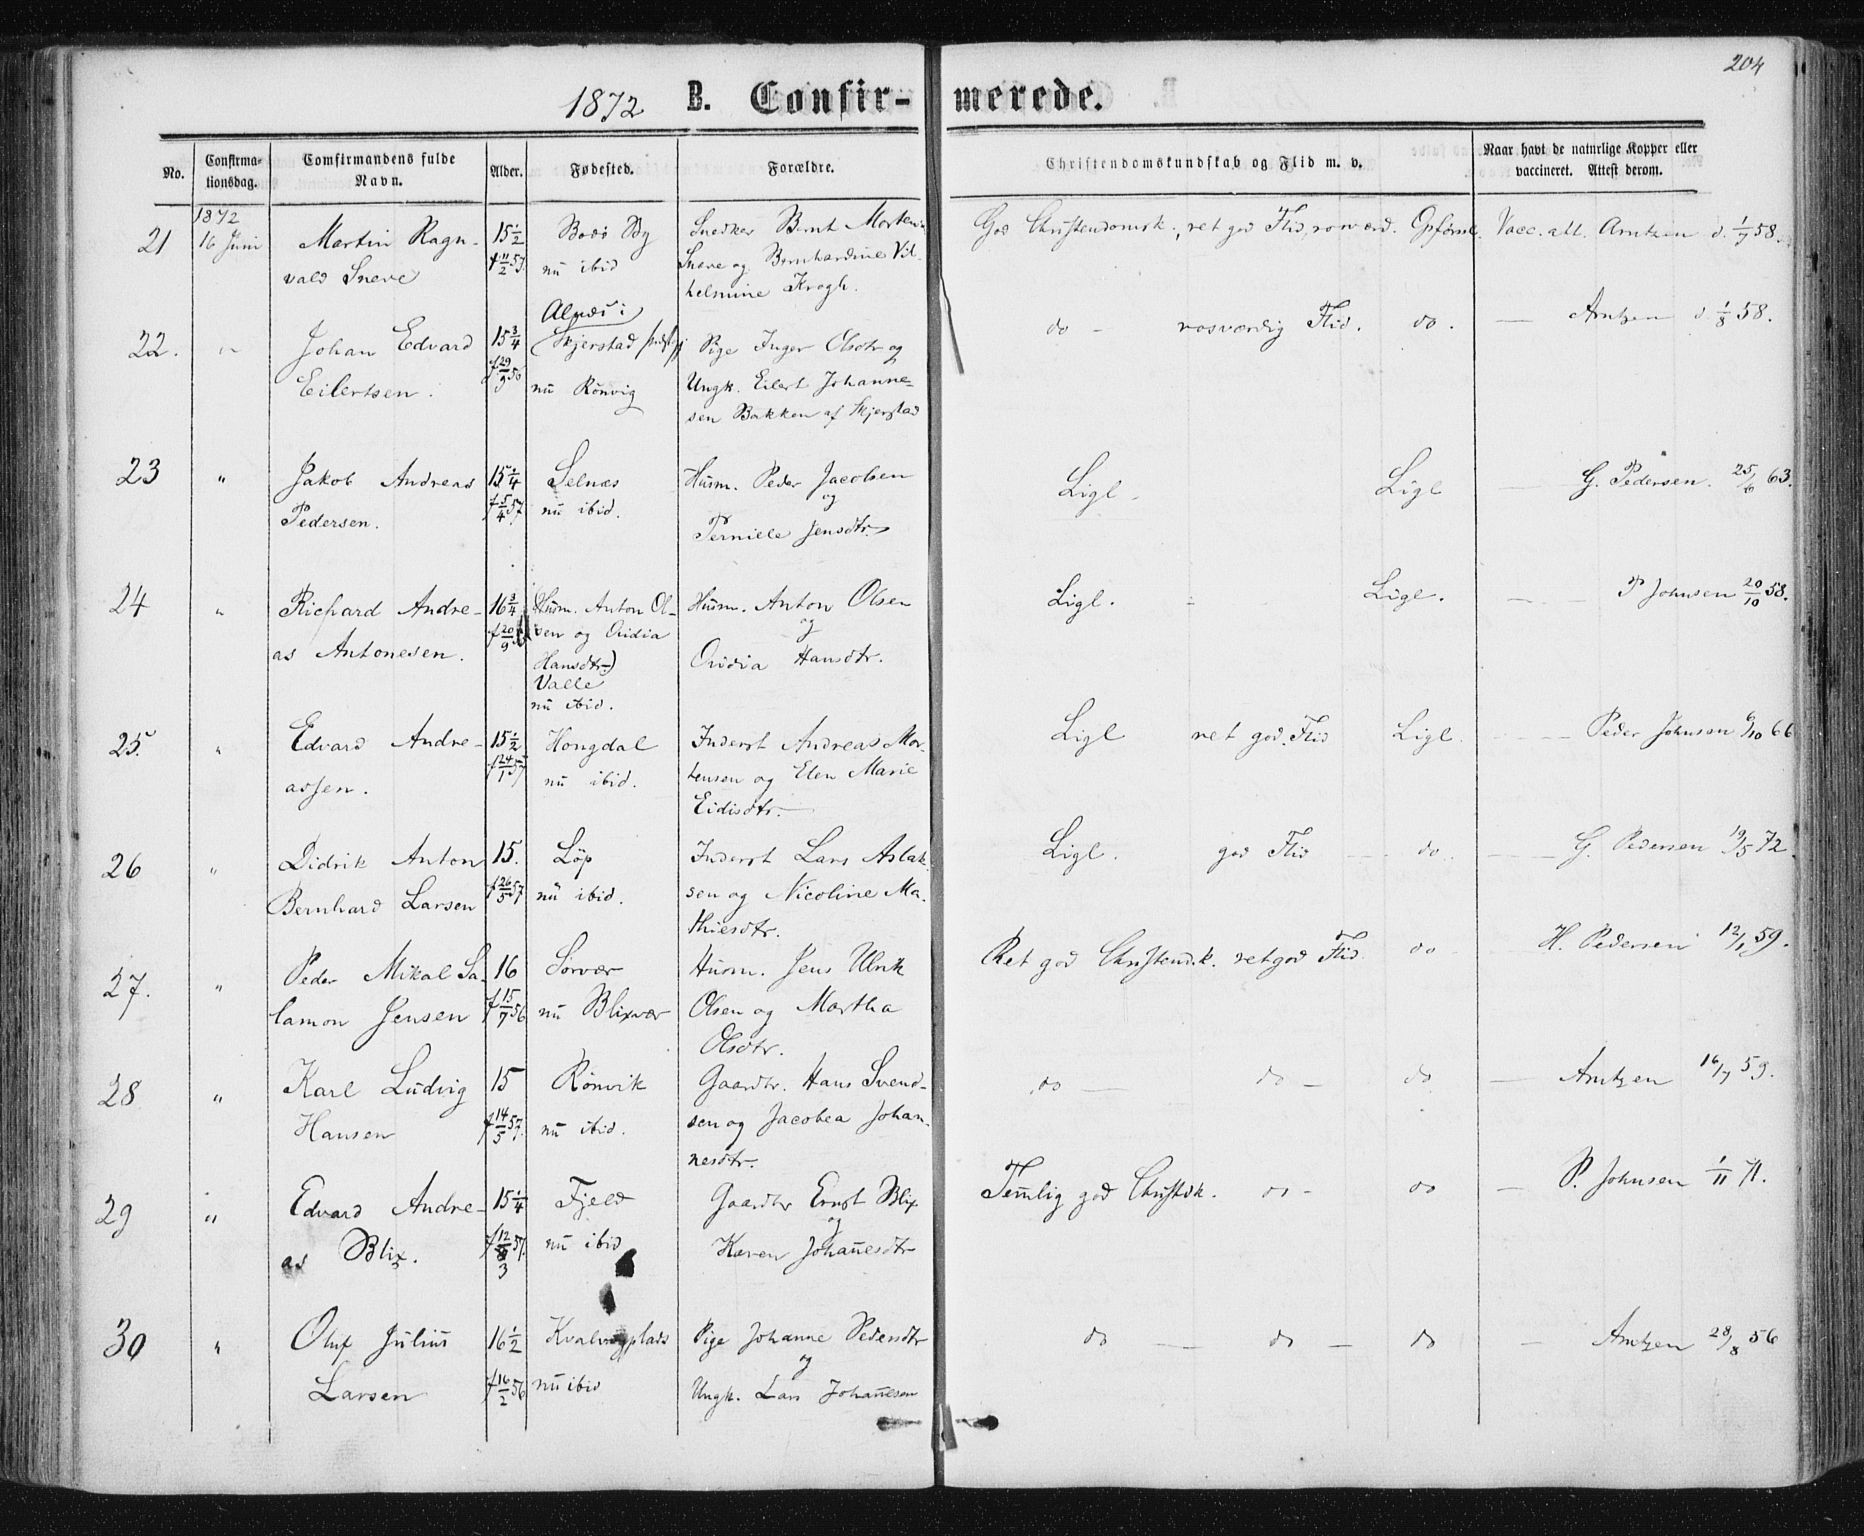 204
1872 B. Confir- merede.
No. Confirma-tionsdag. Comfirmandens fulde Navn. Alder. Fødested. Forældre. Christendomskundskab og Flid m. v. Naar havt de naturlige Kopper eller vaccineret. Attest derom.
1872
21 16 Juni Martin Ragn- 15 1/2 Bodö By Snedker Bernt Morten God Christendomsk., ret god Flid, rosværd. Opförsel. Vacc. att. Arntzen d. 1/7 58.
vald Sneve f 11/2 57. nu ibid Sneve og Bernhardine Vil-
helmine Krogh.
22. " Johan Edvard 15 3/4 Alnæs i Skjerstad Pige Inger Olsdtr og do - rosværdig Flid. do. — Arntzen d 1/8 58.
Eilertsen. f 29/9 56 nu Rönvig Ungk. Eilert Johanne-
sen Bakken af Skjerstad
23 " Jakob Andreas 15 1/4 Selnæs Husm. Peder Jacobsen Ligl. Ligl — G. Pedersen. 25/6 63.
Pedersen. f 5/4 57 nu ibid. og
Pernille Jensdtr.
24 " Richard Andre- 16 3/4 (Husm. Anton Ol- Husm. Anton Olsen Ligl. Ligl. — P Johnsen 20/10 58.
as Antonesen. f 20/9 sen og Ovidia og
Hansdtr.) Ovidia Hansdtr.
Valle
nu ibid.
25. " Edvard Andre- 15 1/2 Hongdal Inderst Andreas Mor- Ligl ret god Flid Ligl. — Peder Johnsen 6/10 66
assen. f 24/1 57 nu ibid. tensen og Elen Marie
Eidisdtr.
26 " Didrik Anton 15. Löp Inderst Lars Aslak- Ligl. god Flid — do. — G. Pedersen 19/5 72.
Bernhard Larsen f 26/5 57 nu ibid. sen og Nicoline Ma-
thiesdtr.
27. " Peder Mikal Sa- 16 Sörvær Husm. Jens Ulrik Ret god Christendsk. ret god Flid do — H. Pedersen 12/1 59.
lamon Jensen f 15/7 56 nu Blixvær Olsen og Martha
Olsdtr.
28 " Karl Ludvig 15 Rönvik Gaardbr. Hans Svend- do — do — do — Arntzen 16/7 59.
Hansen f 14/5 57. nu ibid. sen og Jacobea Johan-
nesdtr.
29 " Edvard Andre- 15 1/4 Fjeld Gaardbr Ernst Blix Temlig god Christdk. do - do — P. Johnsen 1/11 71.
as Blix. f 12/3 57. nu ibid og
Karen Johanesdtr
30 " Oluf Julius 16 1/2 Kvalvogplads Pige Johanne Pedersdtr do — do — do — Arntzen 28/8 56
Larsen f 16/2 56 nu ibid og
Ungk. Lars Johanesen